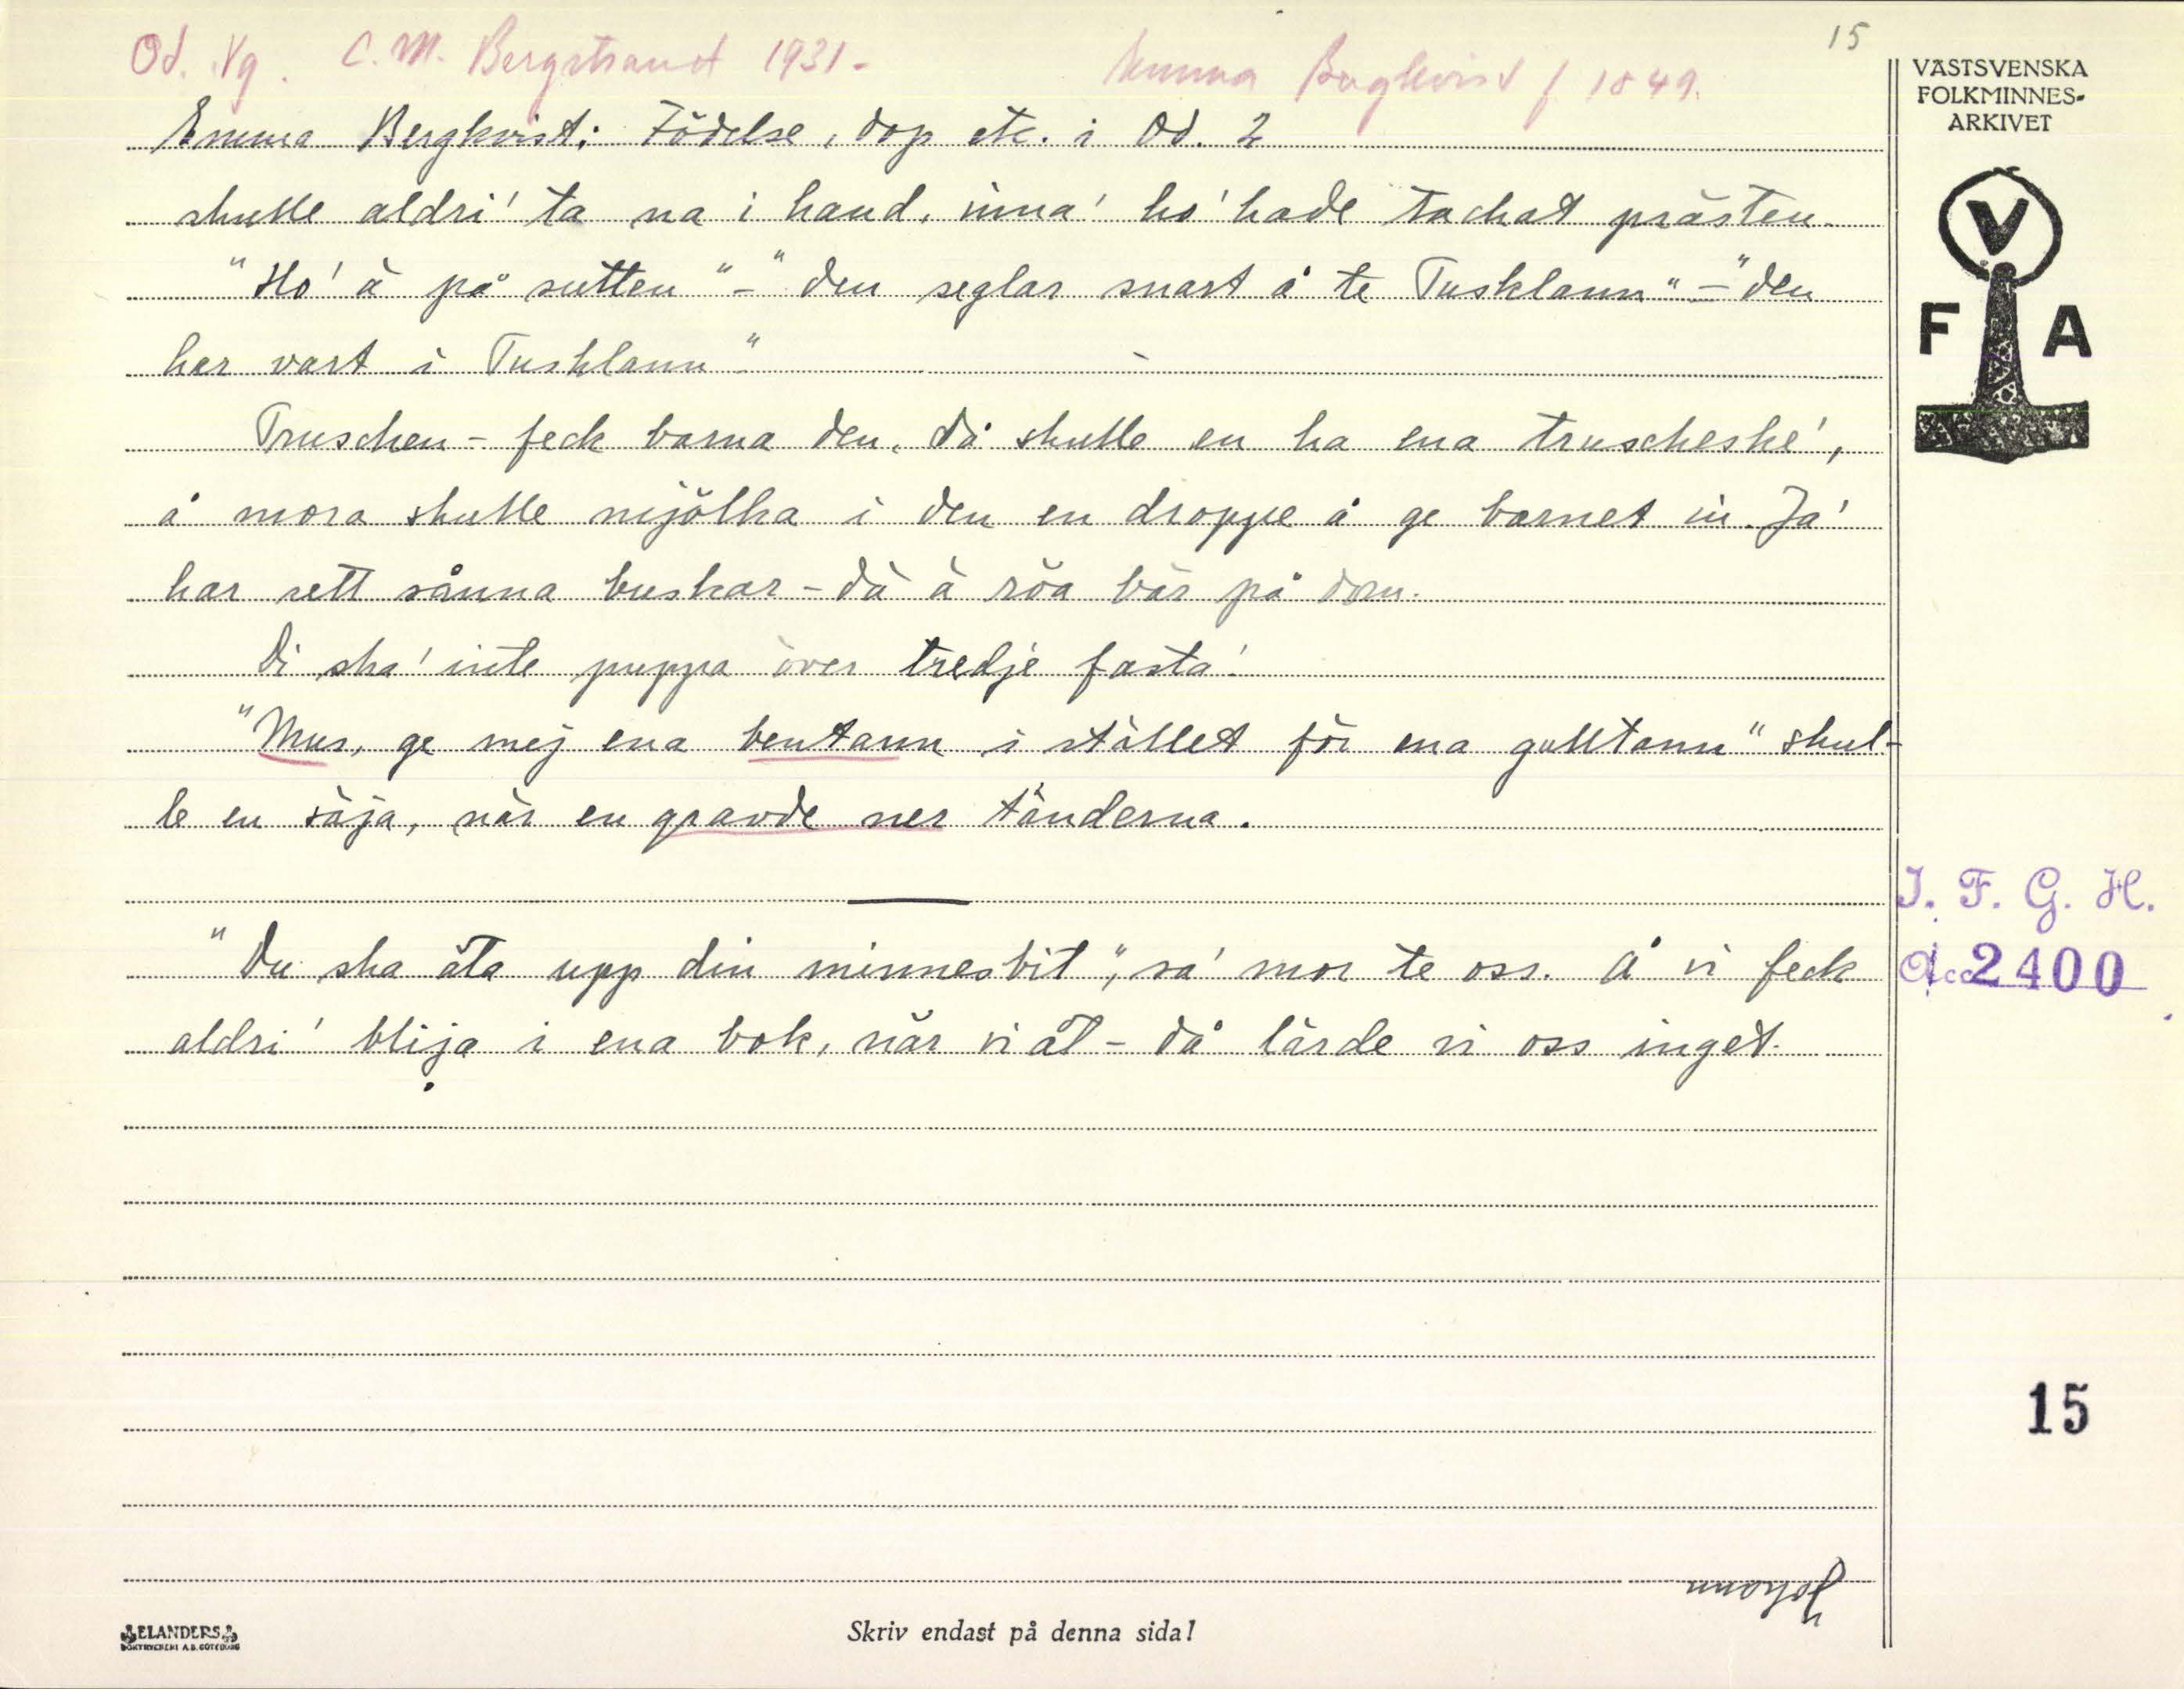 15
Od. Vg. C. M. Bergstrand 1931 -
Emma Bergkvist f 1849.
VÄSTSVENSKA
FOLKMINNES-
ARKIVET
V
F A
Emma Bergkvist: Födelse, dop etc. i Od. 2
skulle aldri' ta na i hand, inna' ho' hade tackat prästen.
"Ho' ä på sutten" - "den seglar snart å te Tusklann" - "den
har vart i Tusklann"
Truschen - feck barna den, då skulle en ha ena truscheske',
å mora skulle mjölka i den en droppe å ge barnet in. Ja'
har sett sånna buskar - dä ä röa bär på dom.
Di ska' inte puppa över tredje fasta'.
"Mus, ge mej ena bentann i stället för ena gulltann" skul-
le en säja, när en gravde ner tänderna.
"Du ska äta upp din minnesbit", sa' mor te oss. Å vi feck
aldri' blija i ena bok, när vi åt - då lärde vi oss inget.
I. F. G. H.
Acc 2400
15
ELANDERS
BOKTRYCKERI A.B. GÖTEBORG
Skriv endast på denna sida!